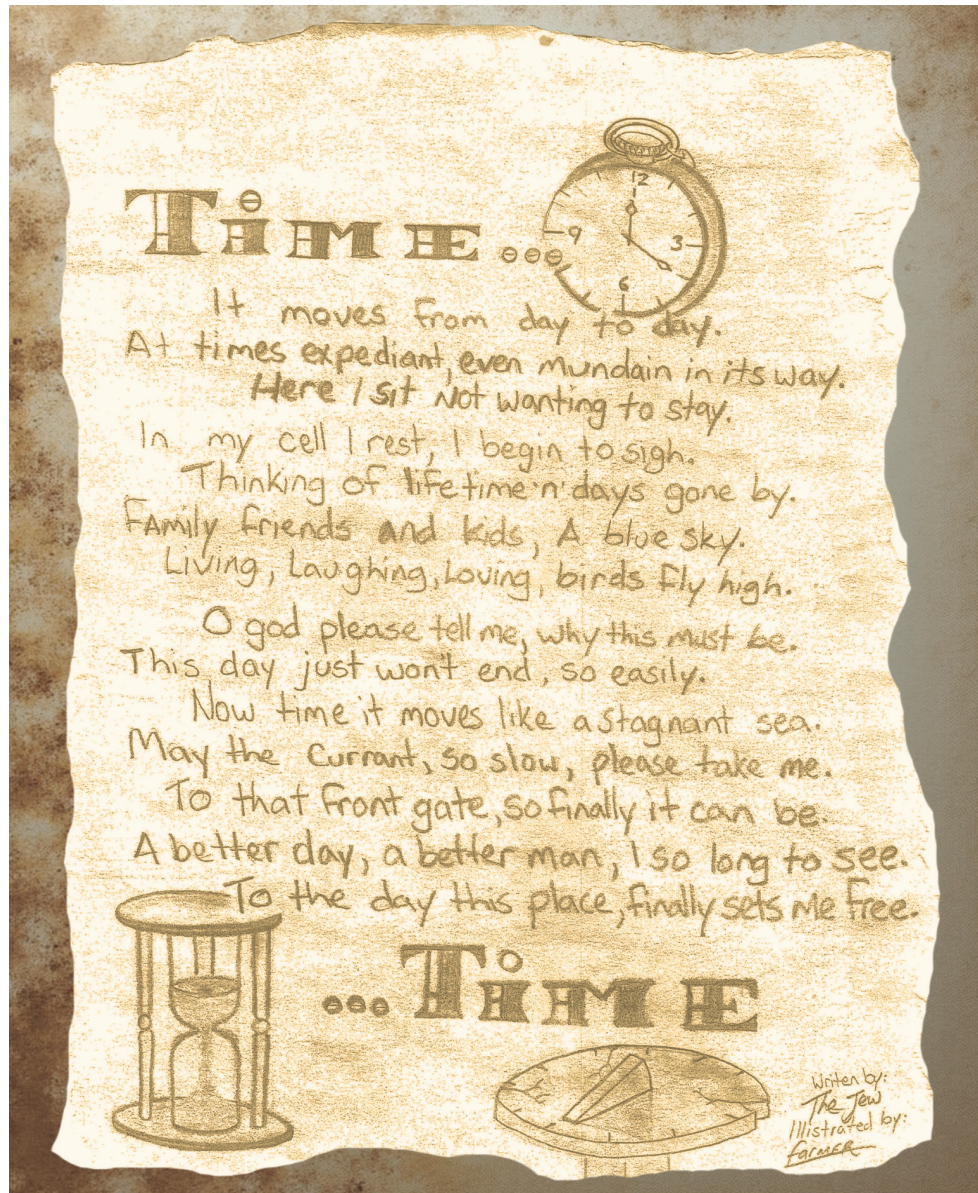 TIME...
12
1
9
3
6
It moves from day to day.
At times expediant, even mundain in its way.
Here I sit Not wanting to stay.
In my cell I rest, I begin to sigh.
Thinking of lifetime 'n' days gone by.
FAmily friends and kids, A blue sky.
Living, Laughing, Loving, birds fly high.
O god please tell me, why this must be.
This day just won't end, so easily.
Now time it moves like a stagnant sea.
May the Currant, so slow, please take me.
To that front gate, so finally it can be.
A better day, a better man, I so long to see.
To the day this place, finally sets me free.
...TIME
Writen by:
The Jew
Illistrated by:
farmer